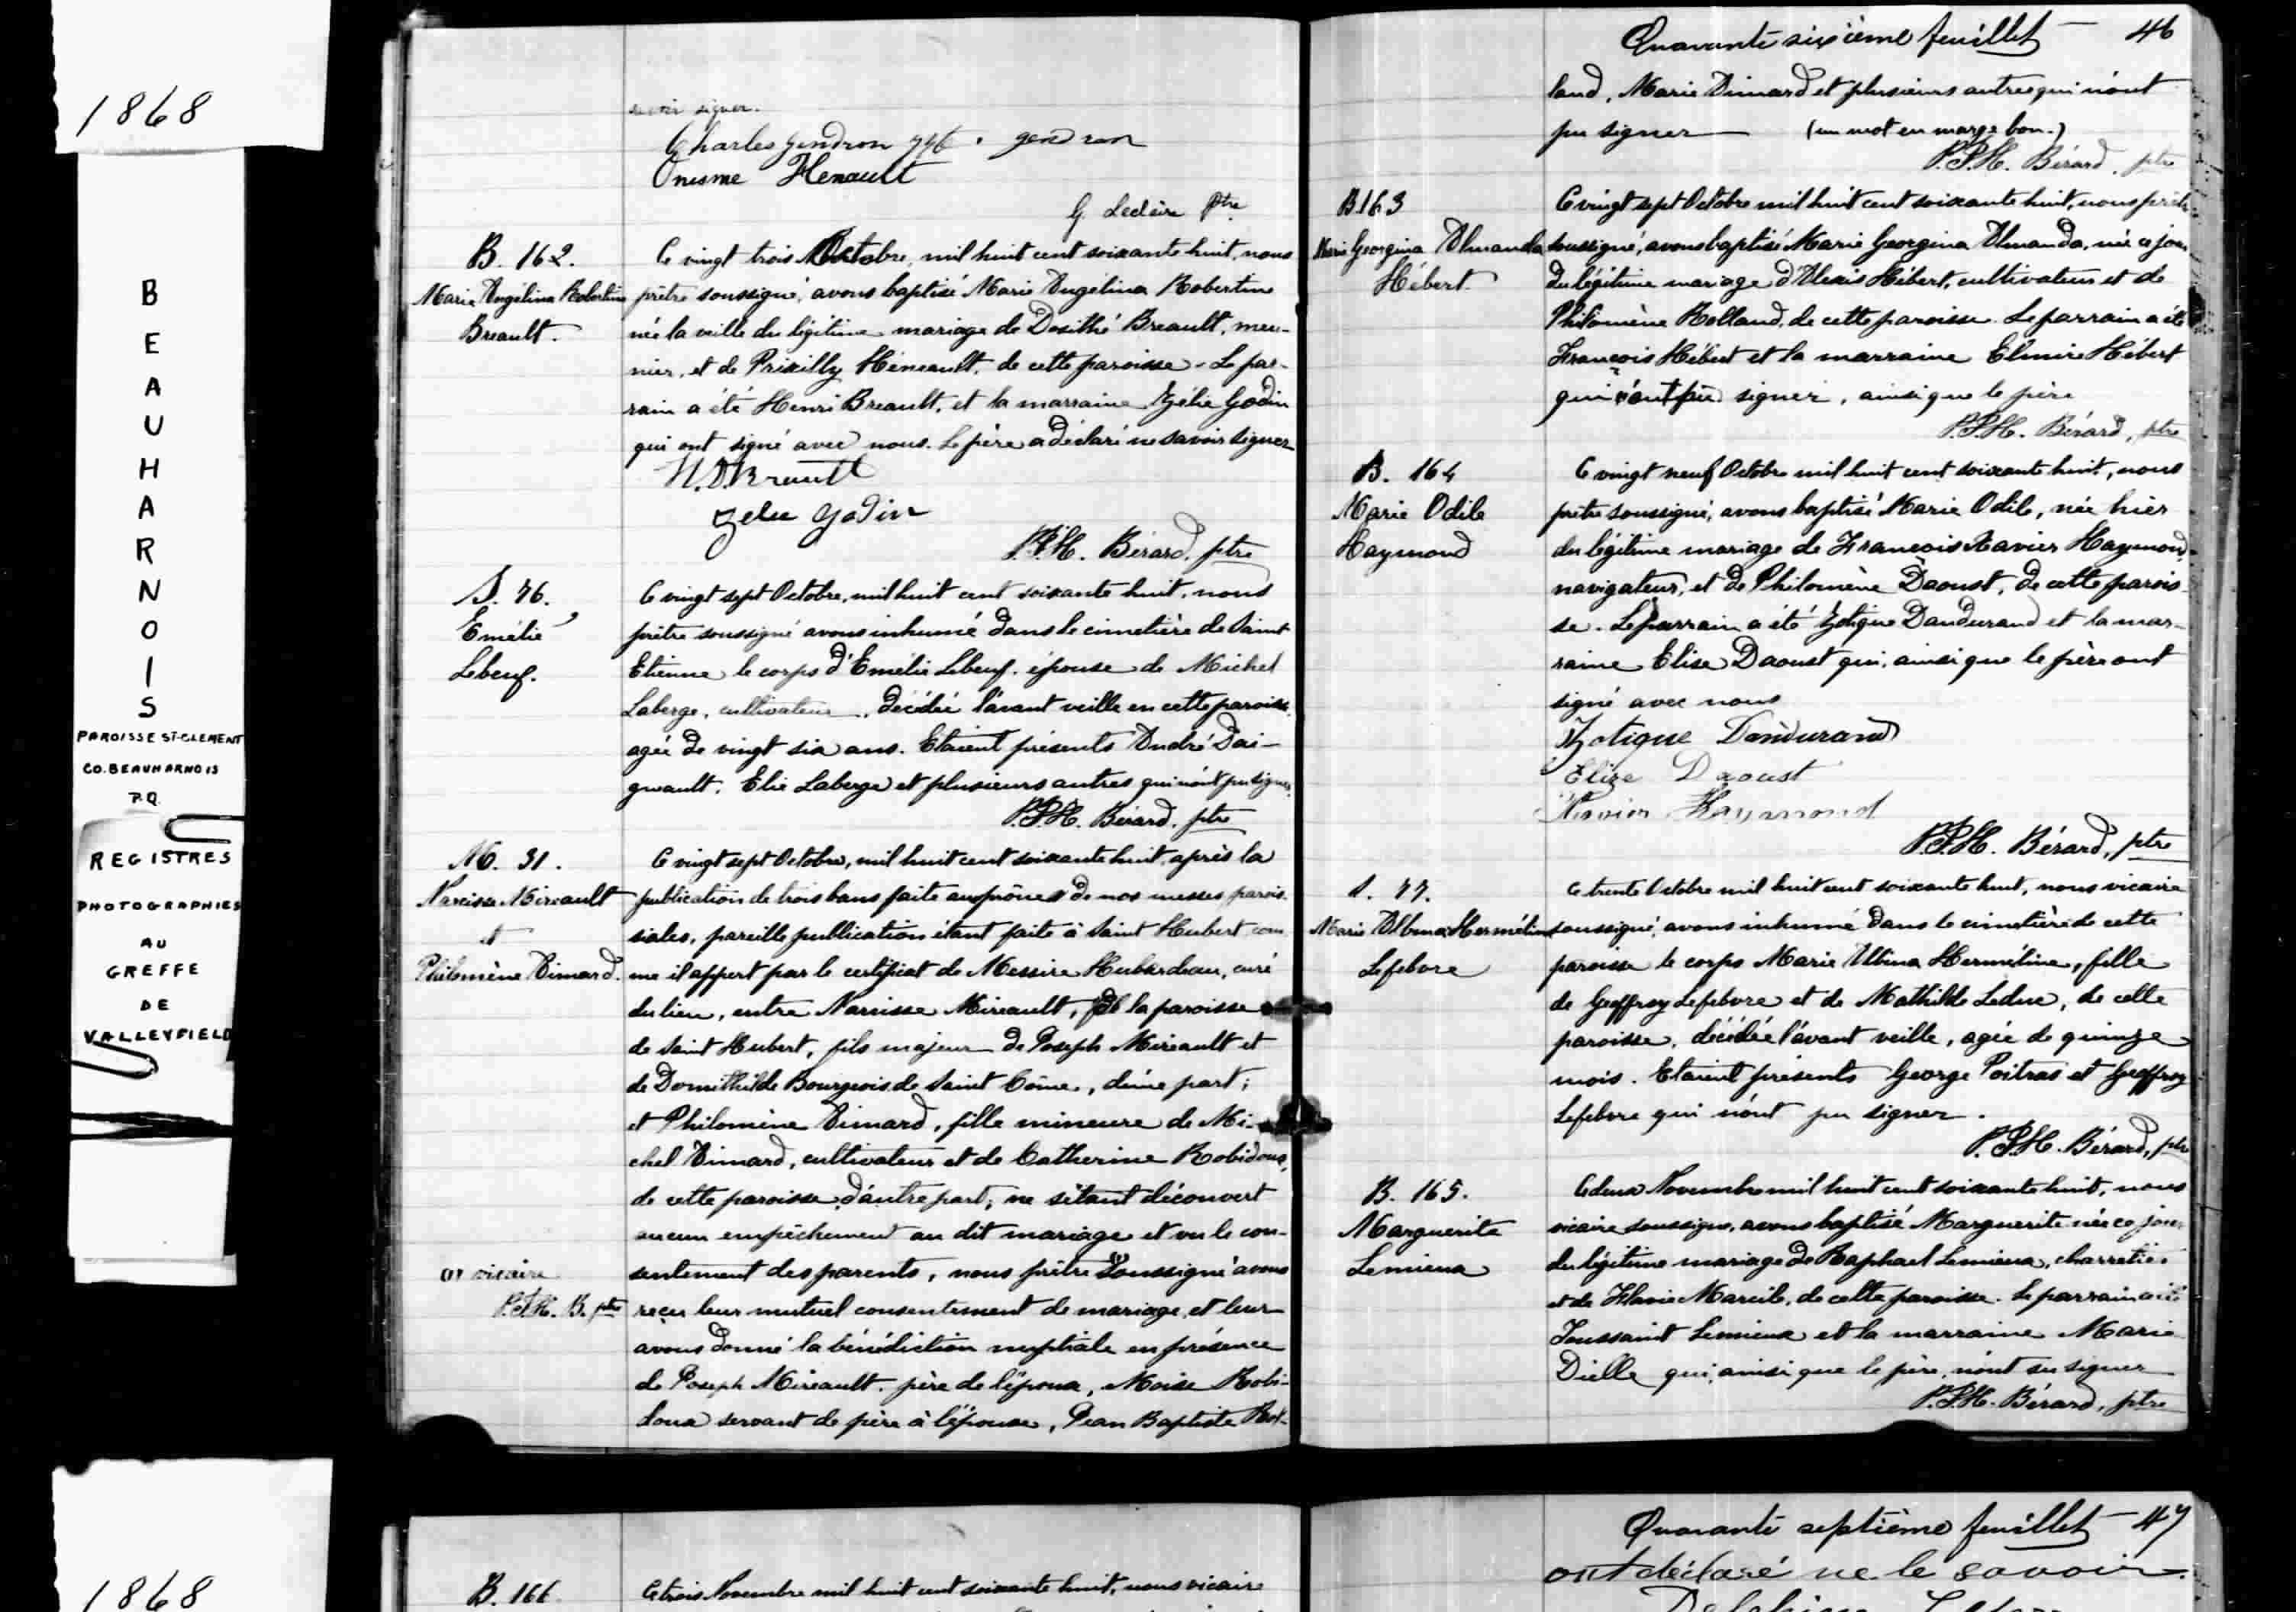 1868
BEAUHARNOIS
PAROISSE ST-CLEMENT
CO. BEAUHARNOIS
P.Q.
REGISTRES
PHOTOGRAPHIES
AU
GREFFE
DE
VALLEYFIELD
1868
savoir signer.
Charles Gendron
gendron
Onesme Henault
G Leclère Ptre
B. 162.
Marie Angélina Robertine
Breault.
Ce vingt trois Octobre, mil huit cent soixante huit, nous
prêtre soussigné, avons baptisé Marie Angélina Robertine
née la veille du légitime mariage de Dosithé Breault, meu-
nier, et de Priscilly Héneault, de cette paroisse. Le par-
rain a été Henri Breault, et la marraine Zélie Godin
qui ont signé avec nous. Le père a déclaré ne savoir signer
H. D. Brault
Zelie Godin
P.P.H. Bérard, ptre
S. 76.
Emélie
Lebeuf.
Ce vingt sept Octobre, mil huit cent soixante huit, nous
prêtre soussigné avons inhumé dans le cimetière de Saint
Etienne le corps d'Emélie Lebeuf, épouse de Michel
Laberge, cultivateur, décédée l'avant veille en cette paroisse,
agée de vingt six ans. Etaient présents André Dai-
gneault, Elie Laberge et plusieurs autres qui n'ont pu signer.
P.P.H. Bérard, ptre
M. 31.
Narcisse Mireault
et
Philomène Dimard.
Ce vingt sept Octobre, mil huit cent soixante huit, après la
publication de trois bans faite aux prônes de nos messes parois-
siales, pareille publication étant faite à Saint Hubert com
me il appert par le certificat de Messire Hubardeau, curé
du lieu, entre Narcisse Mireault, de la paroisse
de Saint Hubert, fils majeur de Joseph Mireault et
de Domithilde Bourgeois de Saint Côme, d'une part;
et Philomène Dimard, fille mineure de Mi-
chel Dimard, cultivateur et de Catherine Robidoux,
de cette paroisse, d'autre part; ne s'étant découvert
aucun empêchement au dit mariage et vu le con-
sentement des parents, nous prêtre soussigné avons
vicaire
P.P.H. B. ptre
reçu leur mutuel consentement de mariage et leur
avons donné la bénédiction nuptiale en présence
de Joseph Mireault, père de l'époux, Moïse Robi-
doux servant de père à l'épouse, Jean Baptiste Rol-
Quarante sixième feuillet 46
land, Marie Dimard et plusieurs autres qui n'ont
pu signer (un mot en marge bon.)
P.P.H. Bérard, ptre
B. 163
Marie Georgina Almanda
Hébert.
Ce vingt sept Octobre mil huit cent soixante huit, nous prêtre
soussigné, avons baptisé Marie Georgina Almanda, née ce jour
du légitime mariage d'Alexis Hébert, cultivateur et de
Philomène Rolland, de cette paroisse. Le parrain a été
François Hébert et la marraine Elmire Hébert
qui n'ont pu signer, ainsi que le père
P.P.H. Bérard, ptre
B. 164
Marie Odile
Haymond
Ce vingt neuf Octobre mil huit cent soixante huit, nous
prêtre soussigné, avons baptisé Marie Odile, née hier
du légitime mariage de François Xavier Haymond,
navigateur, et de Philomène Daoust, de cette parois-
se. Le parrain a été Zotique Dandurand et la mar-
raine Elise Daoust qui, ainsi que le père ont
signé avec nous
Zotique Dandurand
Elize Daoust
Xavier Haymond
P.P.H. Bérard, ptre
S. 77.
Marie Albina Herméline
Lefebvre
Ce trente Octobre mil huit cent soixante huit, nous vicaire
soussigné, avons inhumé dans le cimetière de cette
paroisse le corps Marie Albina Herméline, fille
de Geoffroy Lefebvre et de Mathilde Leduc, de cette
paroisse, décédée l'avant veille, agée de quinze
mois. Etaient présents George Poitras et Geoffroy
Lefebvre qui n'ont pu signer.
P.P.H. Bérard, ptre
B. 165.
Marguerite
Lemieux
Ce deux Novembre mil huit cent soixante huit, nous
vicaire soussigné, avons baptisé Marguerite née ce jour
du légitime mariage de Raphael Lemieux, charretier
et de Flavie Marcile, de cette paroisse. Le parrain a été
Toussaint Lemieux et la marraine Marie
Dielle qui, ainsi que le père, n'ont su signer
P.P.H. Bérard, ptre
B. 166
Ce trois Novembre mil huit cent soixante huit, nous vicaire
Quarante septième feuillet 47
ont déclaré ne le savoir.